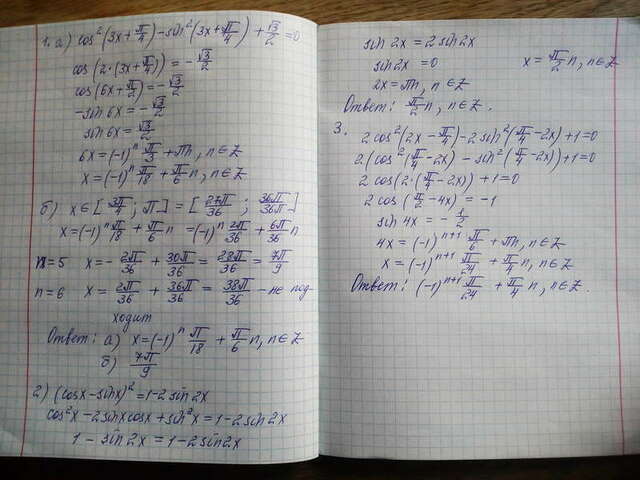 1. а) cos²(3x+π/4)-sin²(3x+π/4)+√3/2=0
cos(2·(3x+π/4))=-√3/2
cos(6x+π/2)=-√3/2
-sin6x=-√3/2
sin6x=√3/2
6x=(-1)ⁿπ/3+πn, n∈Z
x=(-1)ⁿπ/18+π/6n, n∈Z
б) x∈[3π/4; π]=[27π/36; 36π/36]
x=(-1)ⁿπ/18+π/6n=(-1)ⁿ2π/36+6π/36n
n=5 x=-2π/36+30π/36=28π/36=7π/9
n=6 x=2π/36+36π/36=38π/36-не под-
ходит
Ответ: а) x=(-1)ⁿπ/18+π/6n, n∈Z
б) 7π/9
2) (cosx-sinx)²=1-2sin2x
cos²x-2sinxcosx+sin²x=1-2sin2x
1-sin2x=1-2sin2x
sin2x=2sin2x
sin2x=0 x=π/2n, n∈Z
2x=πn, n∈Z
Ответ: π/2n, n∈Z.
3.
2cos²(2x-π/4)-2sin²(π/4-2x)+1=0
2·(cos²(π/4-2x)-sin²(π/4-2x))+1=0
2cos(2·(π/4-2x))+1=0
2cos(π/2-4x)=-1
sin4x=-1/2
4x=(-1)ⁿ⁺¹π/6+πn, n∈Z
x=(-1)ⁿ⁺¹π/24+π/4n, n∈Z
Ответ: (-1)ⁿ⁺¹π/24+π/4n, n∈Z.